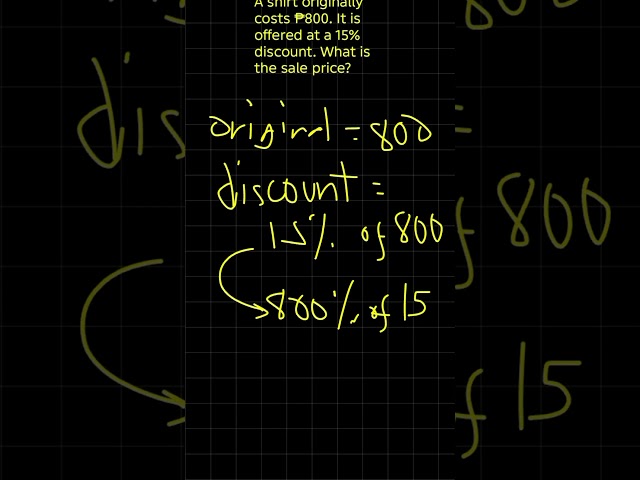 A shirt originally
costs ₱800. It is
offered at a 15%
discount. What is
the sale price?
original = 800
discount =
15% of 800
800% of 15